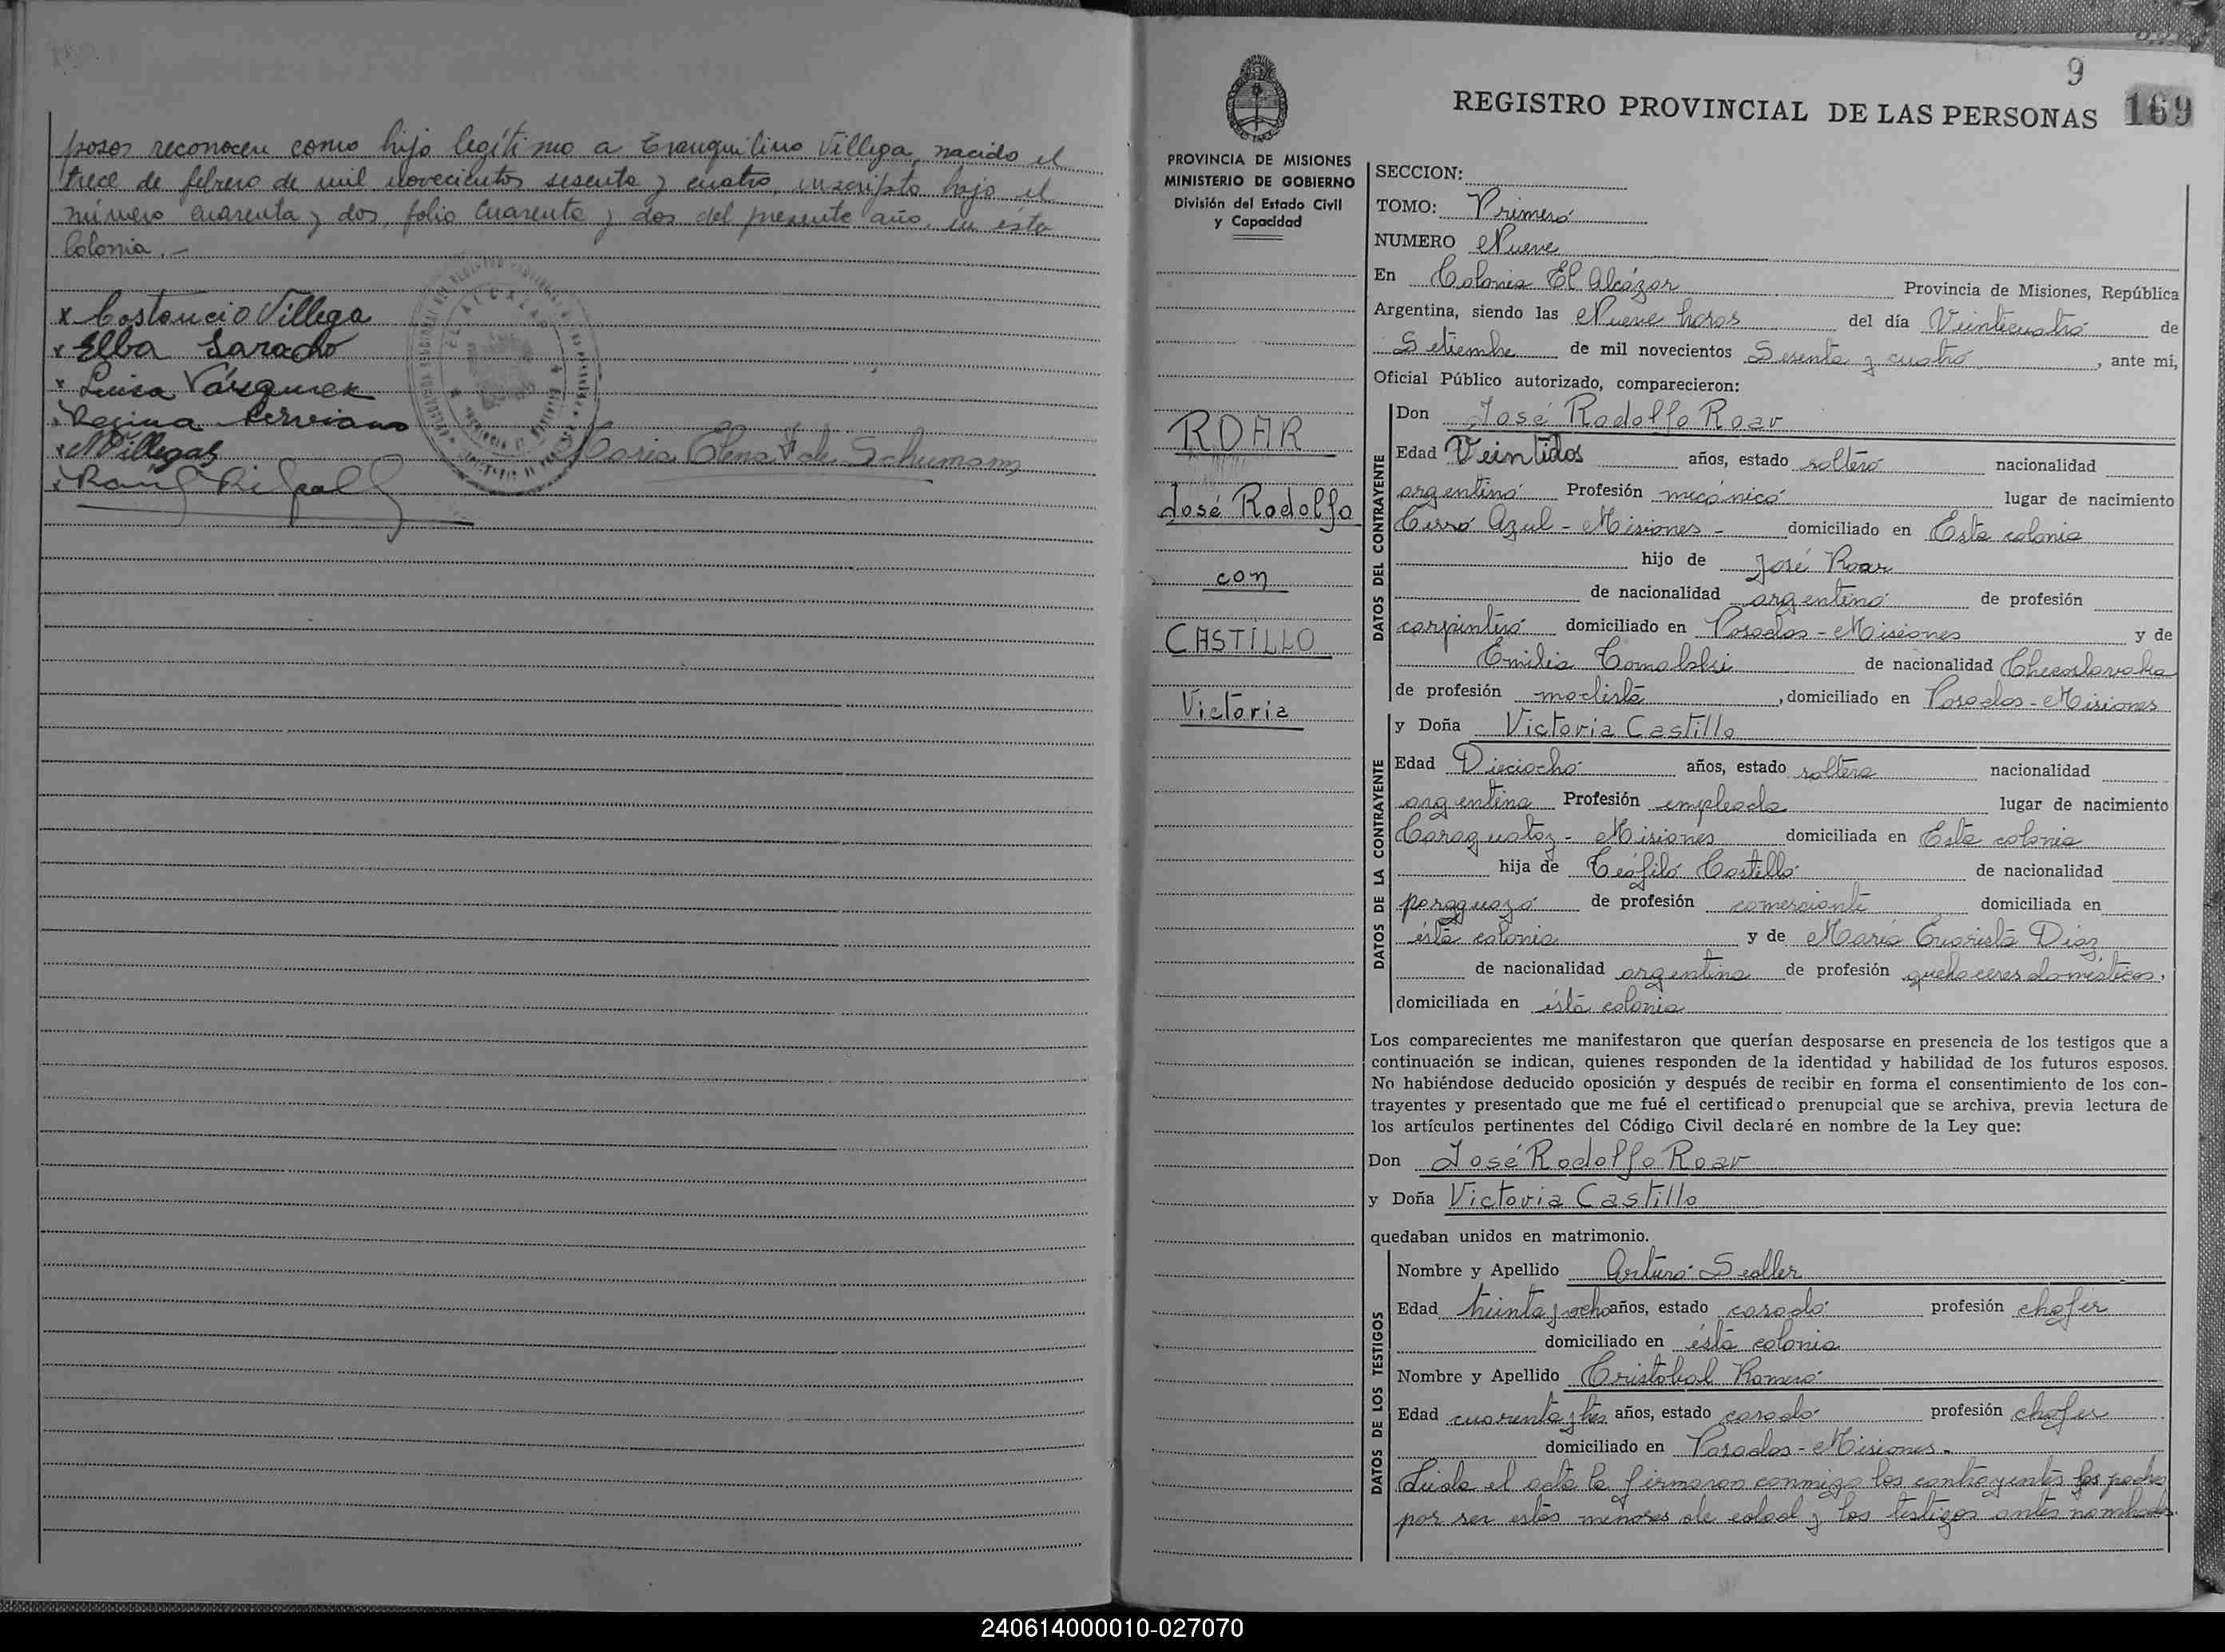 posos reconocen como hijo legítimo a Tranquilino Villega, nacido el
trece de febrero de mil novecientos sesenta y cuatro, inscripto bajo el
número cuarenta y dos, folio cuarenta y dos del presente año, en ésta
Colonia.-
x Costancio Villega
x Elba Saracho
x Luisa Vásquez
x Regina Cerviano
x N Villegas
Maria Elena F de Schumann
x Raúl
9
REGISTRO PROVINCIAL DE LAS PERSONAS 169
PROVINCIA DE MISIONES
MINISTERIO DE GOBIERNO
División del Estado Civil
y Capacidad
ROAR
José Rodolfo
con
CASTILLO
Victoria
SECCION:
TOMO: Primero
NUMERO Nueve
En Colonia El Alcázar Provincia de Misiones, República
Argentina, siendo las Nueve horas del día Veinticuatro de
Setiembre de mil novecientos Sesenta y cuatro, ante mí,
Oficial Público autorizado, comparecieron:
DATOS DEL CONTRAYENTE
Don José Rodolfo Roar
Edad Veintidos años, estado soltero nacionalidad
argentino Profesión mecánico lugar de nacimiento
Cerro Azul - Misiones - domiciliado en Esta colonia
hijo de José Roar
de nacionalidad argentino de profesión
carpintero domiciliado en Posadas - Misiones y de
Emilia de nacionalidad Checoslovaka
de profesión modista, domiciliado en Posadas - Misiones
DATOS DE LA CONTRAYENTE
y Doña Victoria Castillo
Edad Dieciocho años, estado soltera nacionalidad
argentina Profesión empleada lugar de nacimiento
Caraguatay - Misiones domiciliada en Esta colonia
hija de Teófilo Castillo de nacionalidad
paraguayo de profesión comerciante domiciliada en
ésta colonia y de María Evarista Díaz
de nacionalidad argentina de profesión quehaceres domésticos,
domiciliada en ésta colonia
Los comparecientes me manifestaron que querían desposarse en presencia de los testigos que a
continuación se indican, quienes responden de la identidad y habilidad de los futuros esposos.
No habiéndose deducido oposición y después de recibir en forma el consentimiento de los con-
trayentes y presentado que me fué el certificado prenupcial que se archiva, previa lectura de
los artículos pertinentes del Código Civil declaré en nombre de la Ley que:
Don José Rodolfo Roar
y Doña Victoria Castillo
quedaban unidos en matrimonio.
DATOS DE LOS TESTIGOS
Nombre y Apellido Arturo Sealler
Edad treinta y ocho años, estado casado profesión chofer
domiciliado en ésta colonia
Nombre y Apellido Cristobal Romero
Edad cuarenta y tres años, estado casado profesión chofer
domiciliado en Posadas - Misiones.
Leída el acta la firmaron conmigo los contrayentes los padres
por ser estos menores de edad y los testigos antes nombrados.
240614000010-027070